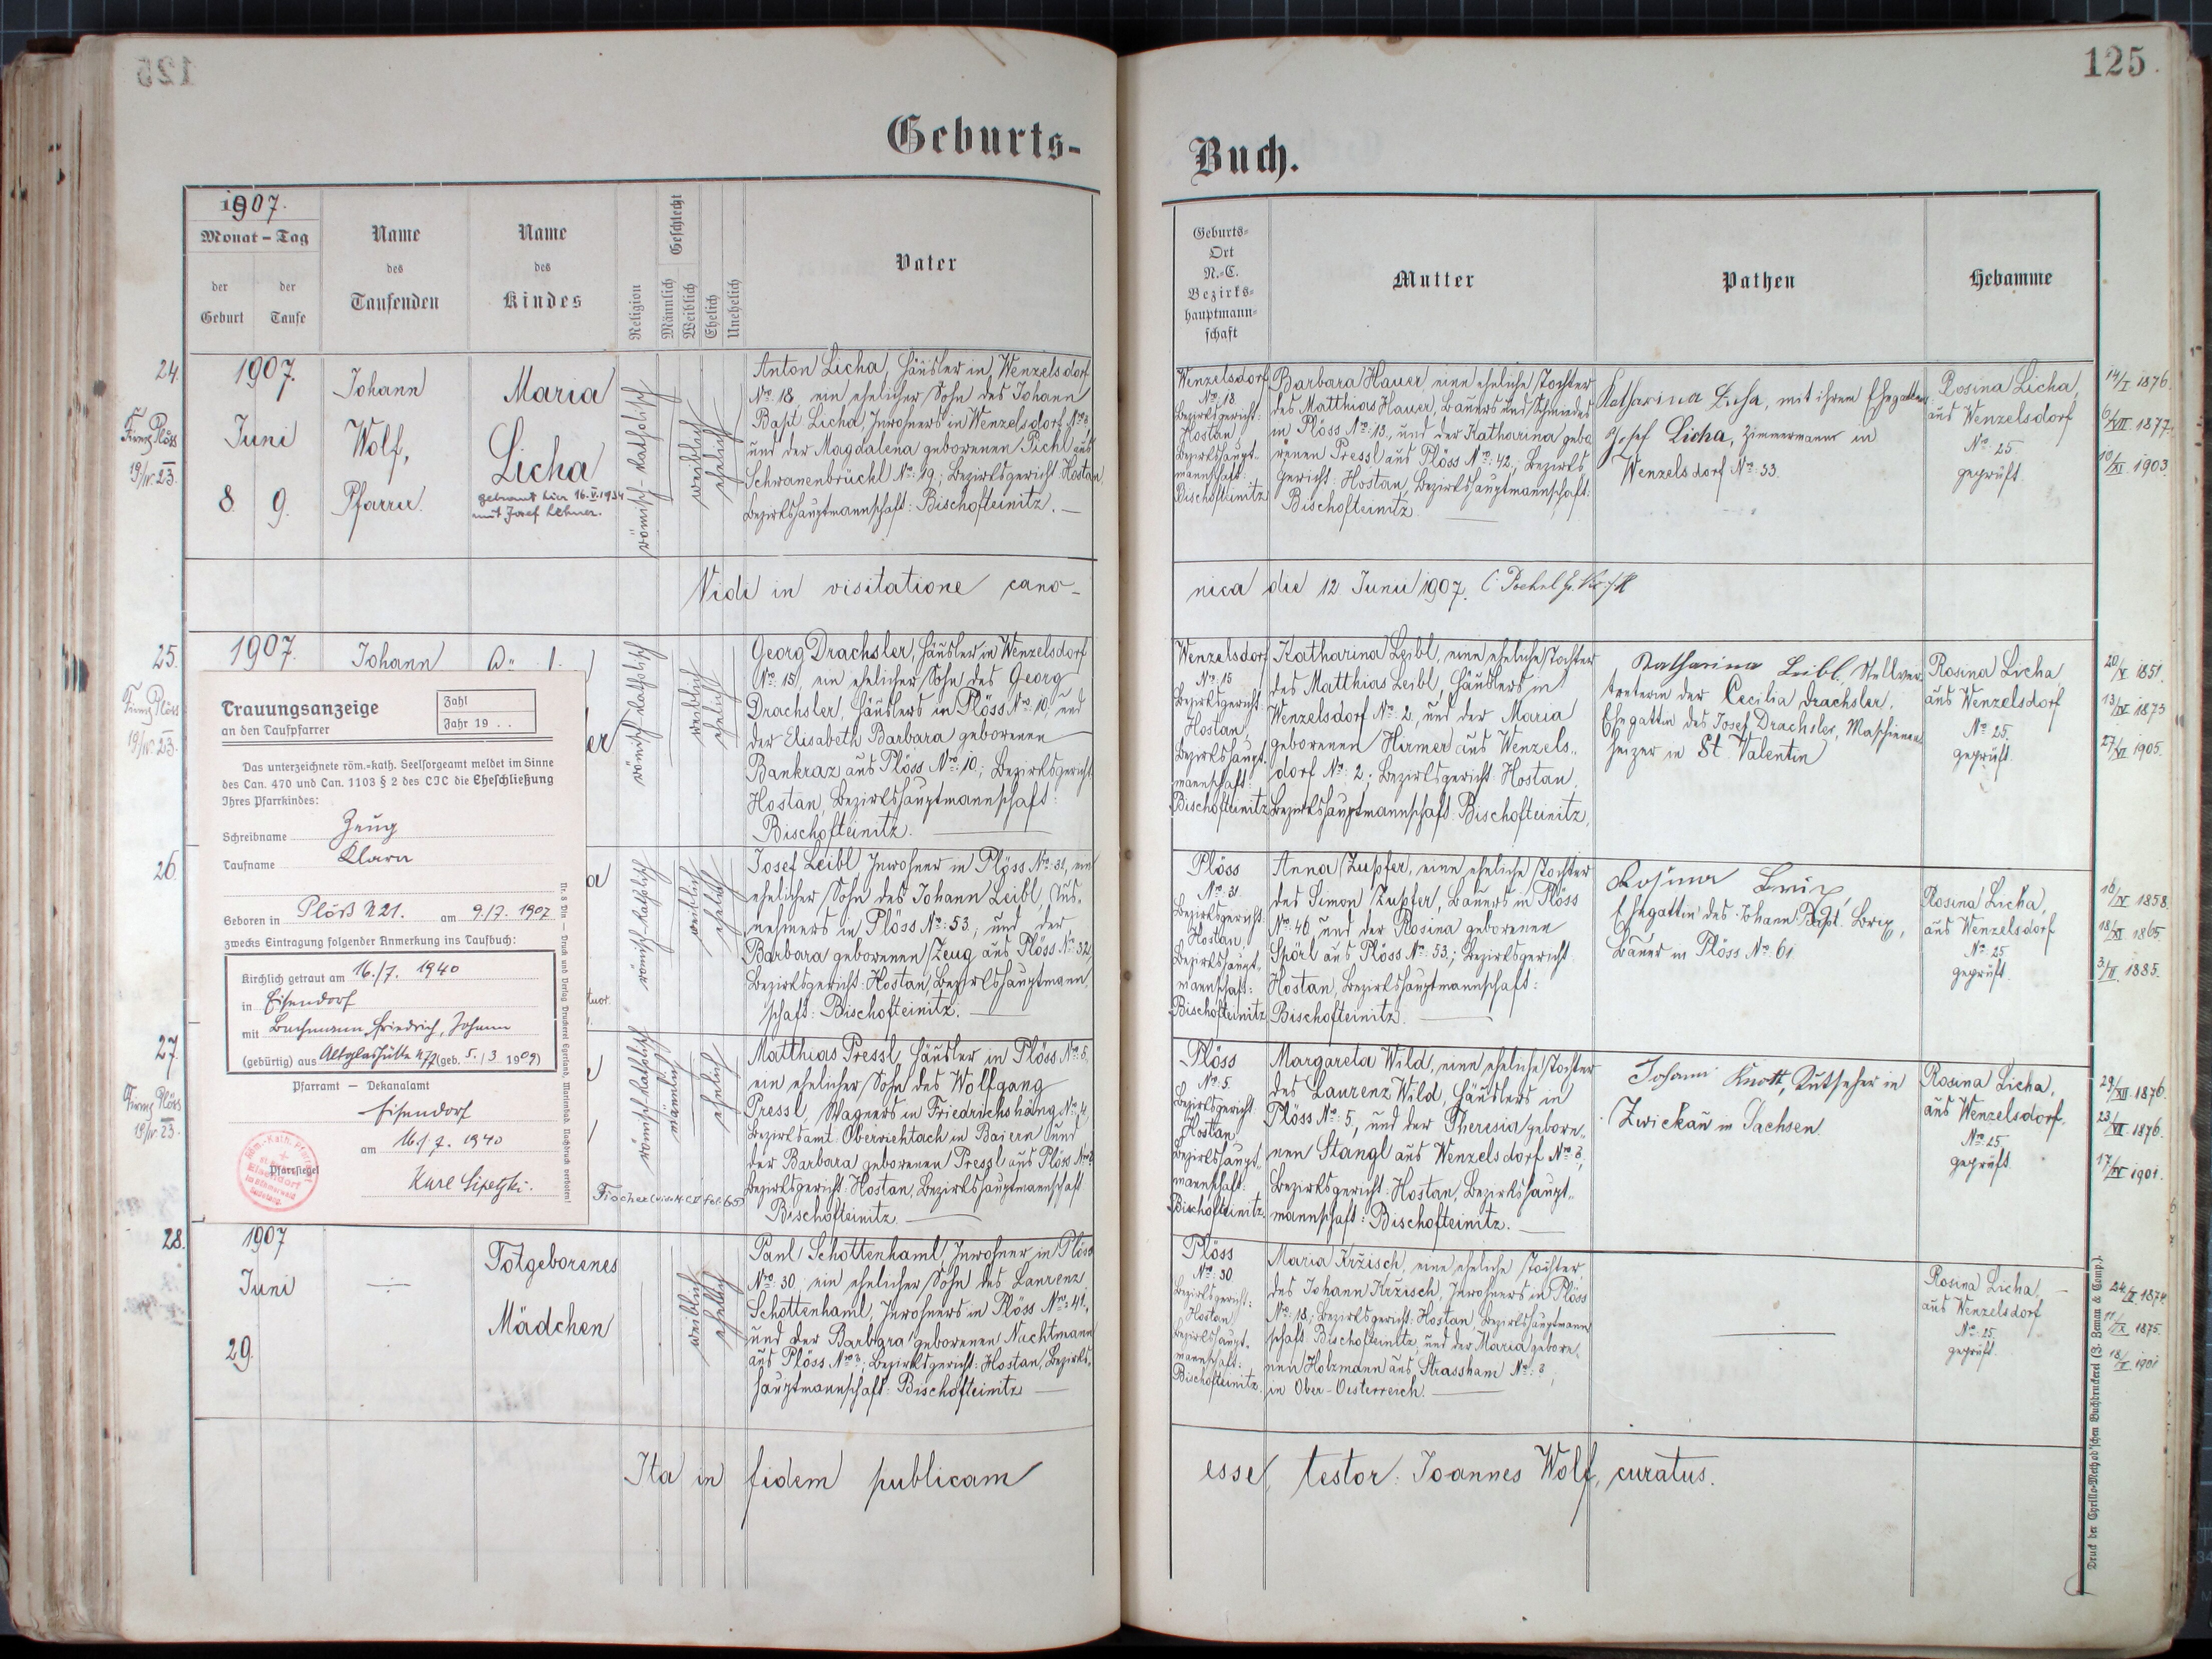 125
Geburts-
Buch.
1907.
Monat - Tag
der Geburt
der Taufe
Name des Taufenden
Name des Kindes
Religion
Geschlecht
Männlich
Weiblich
Ehelich
Unehelich
Vater
Geburts-
Ort
N.-C.
Bezirks-
hauptmann-
schaft
Mutter
Pathen
Hebamme
24.
Firmg Plöss
19/IV. 23.
1907.
Juni
8
9.
Johann
Wolf,
Pfarrer.
Maria
Licha
getraut hier 16.V.1934
mit Josef Lehner.
römisch-katholisch
weiblich
ehelich
Anton Licha, Häusler in Wenzelsdorf
Nro. 18, ein ehelicher Sohn des Johann
Bapt. Licha, Inwohners in Wenzelsdorf Nro. 8,
und der Magdalena geborenen Pichl aus
Schwanenbrückl Nro. 49.; Bezirksgericht Hostau,
Bezirkshauptmannschaft: Bischofteinitz.
Wenzelsdorf
Nro. 18
Bezirksgericht:
Hostau,
Bezirkshaupt-
mannschaft:
Bischofteinitz
Barbara Hauer, eine eheliche Tochter
des Matthias Hauer, Bauers und Schmiedes
in Plöss Nro. 13., und der Katharina gebo
renen Pressl aus Plöss Nro. 42.; Bezirks
gericht: Hostau, Bezirkshauptmannschaft:
Bischofteinitz.
Katharina Licha, mit ihrem Ehegatten
Josef Licha, Zimmermann in
Wenzelsdorf No. 33.
Rosina Licha,
aus Wenzelsdorf
No. 25
geprüft.
14/I 1876.
6/VII. 1877.
10/XI. 1903.
Vidi in visitatione cano-
nica die 12 Junii 1907.
25.
Firmg Plöss
19/IV. 23.
1907.
Johann
er
römisch-katholisch
weiblich
ehelich
Georg Drachsler, Häusler in Wenzelsdorf
Nro. 15, ein ehelicher Sohn des Georg
Drachsler, Häuslers in Plöss Nro. 10, und
der Elisabeth Barbara geborenen
Bankraz aus Plöss Nro. 10.; Bezirksgericht
Hostau, Bezirkshauptmannschaft:
Bischofteinitz.
Wenzelsdorf
Nro. 15
Bezirksgericht:
Hostau,
Bezirkshaupt-
mannschaft:
Bischofteinitz
Katharina Leibl, eine eheliche Tochter
des Matthias Leibl, Häuslers in
Wenzelsdorf Nro. 2, und der Maria
geborenen Hirmer aus Wenzels-
dorf Nro. 2.; Bezirksgericht: Hostau,
Bezirkshauptmannschaft Bischofteinitz.
Katharina Leibl, Stellver-
treterin der Cecilia Drachsler,
Ehegattin des Josef Drachsler, Maschienen-
heizer in St. Valentin
Rosina Licha
aus Wenzelsdorf
No. 25.
geprüft.
20/V. 1851.
13/IV 1873
27/VI 1905.
Trauungsanzeige
an den Taufpfarrer
Zahl
Jahr 19 . .
Das unterzeichnete röm.-kath. Seelsorgeamt meldet im Sinne
des Can. 470 und Can. 1103 § 2 des CIC die Eheschließung
Ihres Pfarrkindes:
Schreibname Zeug
Taufname Klara
Geboren in Plöß N 21. am 9./7. 1907
zwecks Eintragung folgender Anmerkung ins Taufbuch:
Kirchlich getraut am 16./7. 1940
in Eisendorf
mit Bachmann Friedrich, Johann
(gebürtig) aus Altglashütte N 72 (geb. 5./3 1909)
Pfarramt — Dekanalamt
Eisendorf
am 16./7. 1940
Pfarrsiegel
Karl Sipetzki.
Nr. 8 Din — Druck und Verlag Druckerei Egerland, Marienbad. Nachdruck verboten!
26.
a
römisch-katholisch
weiblich
ehelich
Josef Leibl Inwohner in Plöss Nro. 31, ein
ehelicher Sohn des Johann Leibl, Aus-
nehmers in Plöss Nro. 53.; und der
Barbara geborenen Zeug aus Plöss No. 32,
Bezirksgericht: Hostau, Bezirkshauptmann-
schaft: Bischofteinitz.
Plöss
Nro. 31.
Bezirksgericht:
Hostau,
Bezirkshaupt-
mannschaft:
Bischofteinitz
Anna Zupfer, eine eheliche Tochter
des Simon Zupfer, Bauers in Plöss
Nro. 46 und der Rosina geborenen
Spörl aus Plöss Nro. 53.; Bezirksgericht
Hostau, Bezirkshauptmannschaft:
Bischofteinitz.
Rosina
Ehegattin des Johann Bapt.
Bauer in Plöss No. 61.
Rosina Licha,
aus Wenzelsdorf
No. 25
geprüft.
16/IV 1858.
18/XI. 1865.
3/II. 1885.
27.
Firmg Plöss
19/IV. 23.
römisch-katholisch
männlich
ehelich
Fischer (vide M. C II fol. 65)
Matthias Pressl, Häusler in Plöss Nro. 5.
ein ehelicher Sohn des Wolfgang
Pressl, Wagners in Friedrichshäng No. 4,
Bezirksamt Oberviehtach in Baiern und
der Barbara geborenen Pressl aus Plöss Nro. 8
Bezirksgericht: Hostau, Bezirkshauptmannschaft
Bischofteinitz.
Plöss
No. 5.
Bezirksgericht
Hostau,
Bezirkshaupt-
mannschaft:
Bischofteinitz.
Margareta Wild, eine eheliche Tochter
des Laurenz Wild, Häuslers in
Plöss Nro. 5, und der Theresia gebore-
nen Stangl aus Wenzelsdorf Nro. 8,
Bezirksgericht: Hostau, Bezirkshaupt-
mannschaft: Bischofteinitz.
Johann Knott, Kutscher in
Zwickau in Sachsen.
Rosina Licha,
aus Wenzelsdorf.
No. 25
geprüft.
29/XII. 1876.
23/VI. 1876.
17/IV 1901.
28.
1907
Juni
29.
Totgeborenes
Mädchen
weiblich
ehelich
Paul Schottenhaml, Inwohner in Plöss
Nro. 30, ein ehelicher Sohn des Laurenz
Schottenhaml, Inwohners in Plöss Nro. 41,
und der Barbara geborenen Nachtmann
aus Plöss Nro. 3; Bezirksgericht: Hostau, Bezirks-
hauptmannschaft: Bischofteinitz
Plöss
Nro. 30.
Bezirksgericht:
Hostau,
Bezirkshaupt-
mannschaft:
Bischofteinitz.
Maria Kržisch, eine eheliche Tochter
des Johann Kržisch, Inwohners in Plöss
No. 18; Bezirksgericht: Hostau, Bezirkshauptmann
schaft Bischofteinitz, und der Maria gebore-
nen Holzmann aus Strassham No. 3,
in Ober-Oesterreich.
Rosina Licha,
aus Wenzelsdorf
No. 25.
geprüft.
24/X. 1874.
11/IX 1875.
18/X 1901
Ita in fidem publicam
esse, testor: Joannes Wolf, curatus.
Druck der Cyrillo-Method'schen Buchdruckerei (J. Zeman & Comp.).